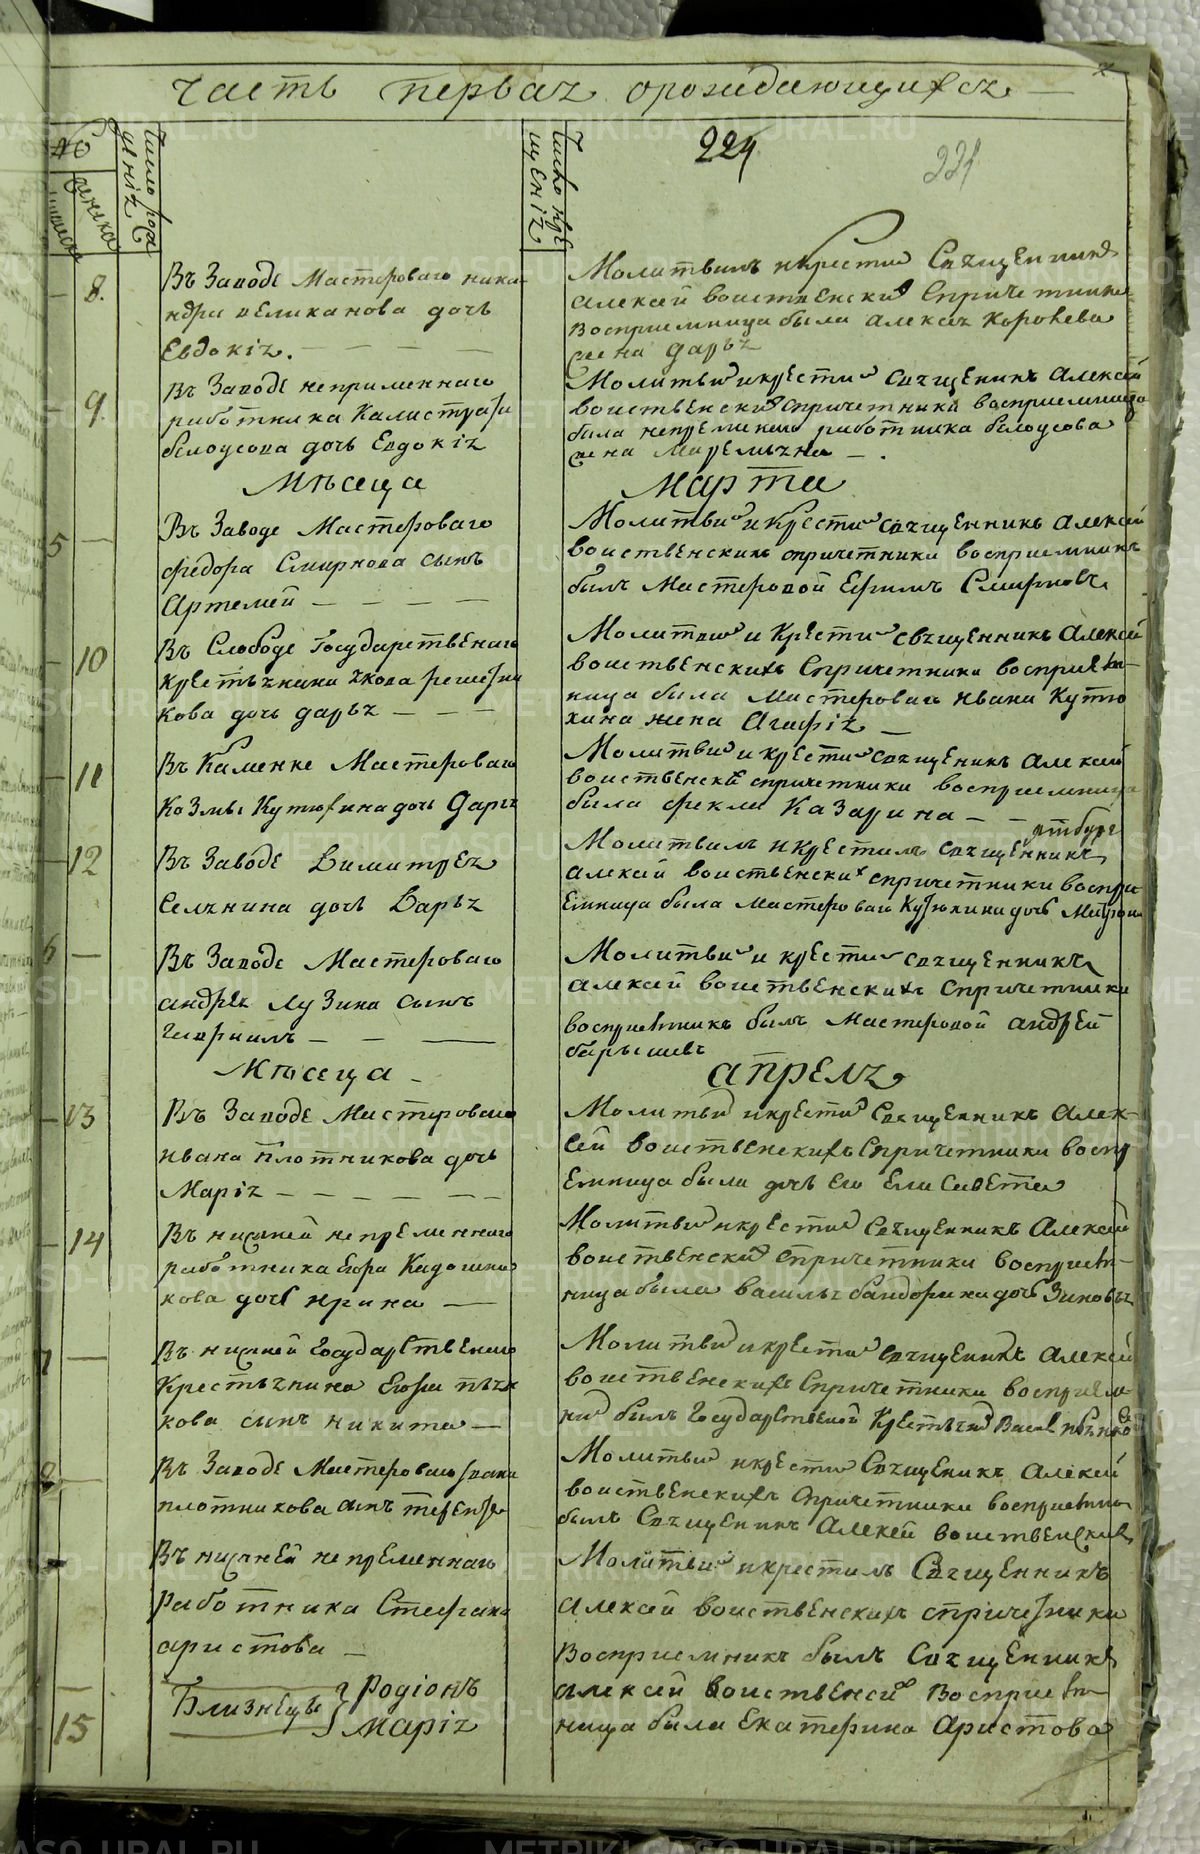 часть первая ораждающихся
№
мужеска
женска
Число рож
денія
Число кре
щенія
224
221
8.
Въ Заводе Мастероваго ника
ндра великанова дочь
Евдокія.
Молитвилъ икрестил Священник
алексей воиственский Спричетники
Восприемница была алексея Королева
жена дарья
9.
Въ Заводе непременнаго
работника Калистрата
белоусова дочь Евдокія
Молитвил икрестил священикъ алексей
воиственский спричетники восприемница
была непременнаго работника белоусова
жена Маремьяна
Мѣсеца
марта
5
Въ Заводе Мастероваго
федора Смирнова сынъ
Артемей
Молитвил икрестил священникъ алексей
воиственскихъ спричетники восприемникъ
былъ Мастеровой Ефимъ Смирновъ
10
Въ Слободе Государственаго
крестьянина якова решетни
кова дочь дарья
Молитвил и Крестил священникъ алексей
воиственскихъ Спричетники восприем
ница была мастероваго ивана Кутю
хина жена Агафія
11
Въ Каменке Мастероваго
Козмы Кутюхина дочь Дарья
Молитвил и крестил священикъ алексей
воиственский спричетники восприемница
была фекла Казарина
12
Въ Заводе Димитрея
Селянина дочь Дарья
Молитвилъ икрестилъ священникъ
алексей воиственский спричетники воспри
емница была мастероваго Кутюхина дочь Матрона
6
Въ Заводе Мастероваго
андрея Лузина сынъ
Гавриилъ
Молитвил и крестил священникъ
алексей воиственскихъ спричетники
восприемникъ былъ мастеровой андрей
барышевъ
Мѣсеца
апреля
13
Въ Заводе Мастероваго
ивана плотникова дочь
Марія
Молитвил икрестил Священникъ алек
сей воиственскихъ Спричетники воспр
емница была дочь его елисавета
14
Въ нижней непременнаго
работника егора Кадошни
кова дочь ирина
Молитвил икрестил Священникъ алексей
воиственский спричетники восприем
ница была василья бандорина дочь Зиновья
7
Въ нижней государственаго
Крестьянина егора пья
кова сынъ никита
Молитвил икрестил священникъ алексей
воиственскихъ Спричетники восприем
никъ былъ государственой Крестьянинъ
8
Въ Заводе Мастероваго ивана
плотникова сынъ терентей
Молитвил икрестил Священикъ алексей
воиственскихъ Спричетники восприемник
былъ Священикъ алексей воиственский
Въ нижней непременнаго
Работника Стефана
аристова
Близнецы } Родіонъ
марія
15
Молитвил икрестилъ Священникъ
алексей воиственскихъ спричетники
Восприемникъ былъ Священникъ
алексей воиственский Восприем
ница была Екатерина Аристова